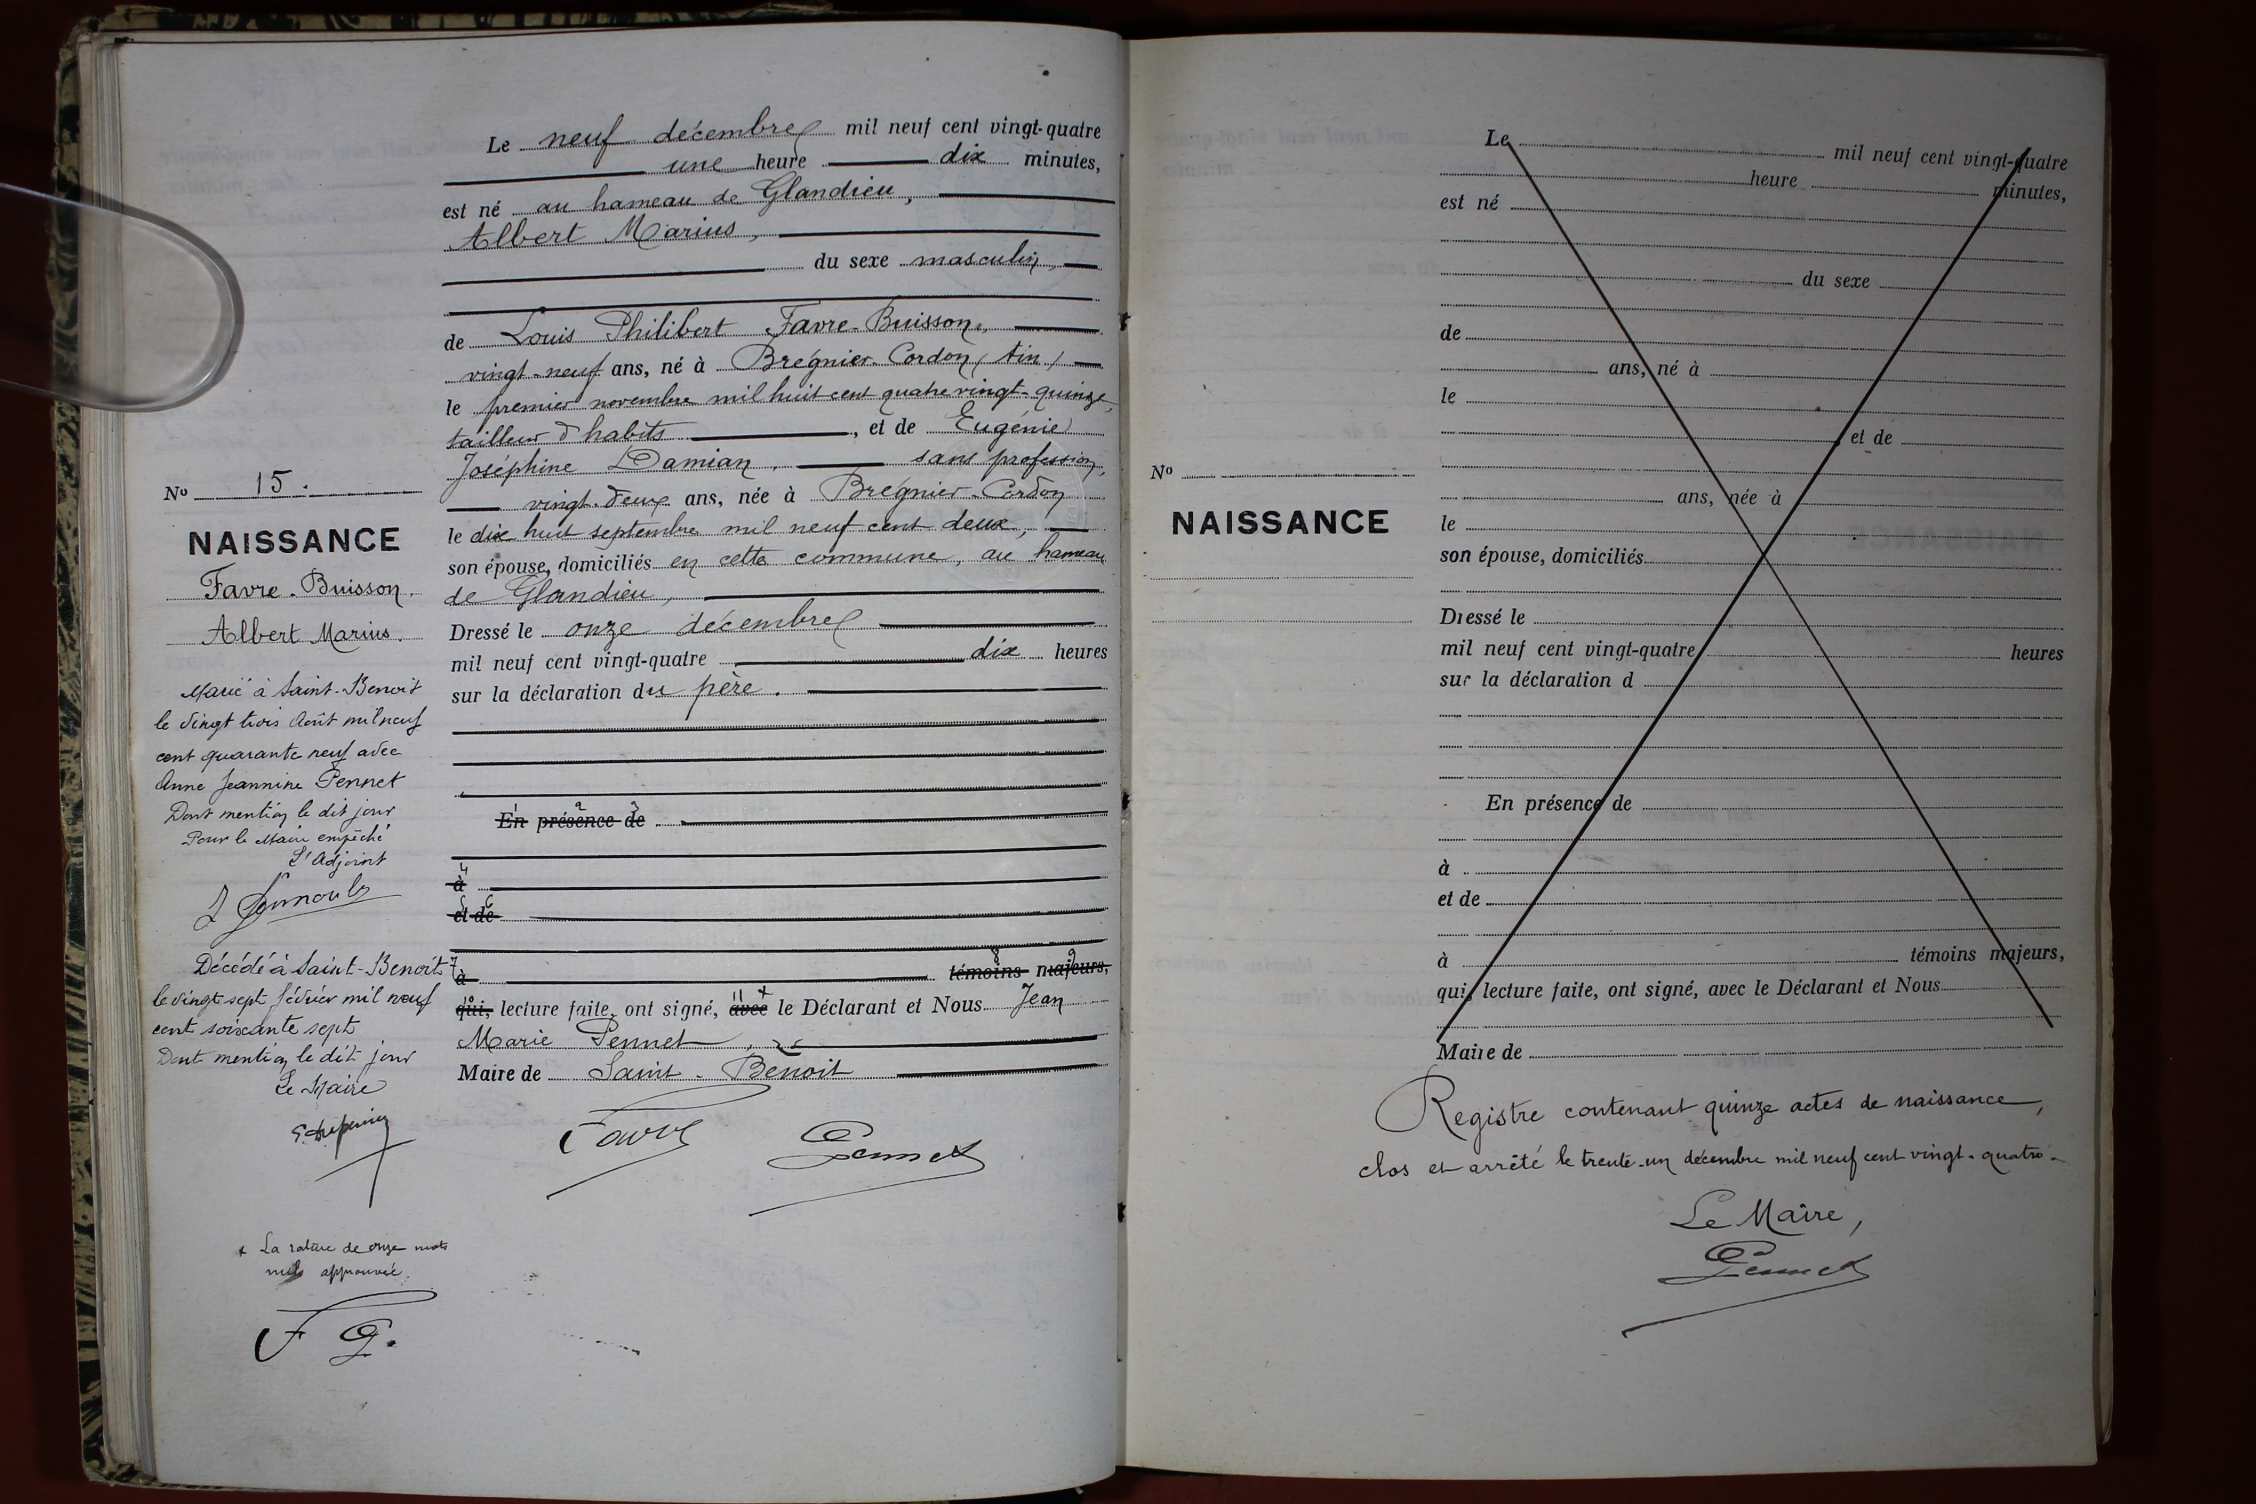 Le neuf décembre mil neuf cent vingt-quatre
une heure dix minutes,
est né au hameau de Glandieu,
Albert Marius,
du sexe masculin,
de Louis Philibert Favre-Buisson,
vingt-neuf ans, né à Brégnier-Cordon (Ain)
le premier novembre mil huit cent quatre vingt-quinze,
tailleur d'habits, et de Eugénie
Joséphine Damian, sans profession,
vingt-deux ans, née à Brégnier-Cordon
le dix huit septembre mil neuf cent deux,
son épouse, domiciliés en cette commune, au hameau
de Glandieu,
Dressé le onze décembre
mil neuf cent vingt-quatre dix heures
sur la déclaration du père.
1 2 3
En présence de
4
à
5 6
et de
7 8 9
à témoins majeurs,
10 11 x
qui, lecture faite, ont signé, avec le Déclarant et Nous Jean
Marie Pennet,
Maire de Saint-Benoit
Favre Pennet
No 15.
NAISSANCE
Favre-Buisson.
Albert Marius.
Marié à Saint-Benoit
le vingt trois Août mil neuf
cent quarante neuf avec
Anne Jeannine Pennet
Dont mention le dit jour
Pour le Maire empêché
L'Adjoint
Décédé à Saint-Benoit
le vingt sept février mil neuf
cent soixante sept
Dont mention le dit jour
Le Maire
x La rature de onze mots
nuls approuvée.
F P.
Le mil neuf cent vingt-quatre
heure minutes,
est né
du sexe
de
ans, né à
le
et de
ans, née à
No
NAISSANCE
le
son épouse, domiciliés
Dressé le
mil neuf cent vingt-quatre heures
sur la déclaration d
En présence de
à
et de
à témoins majeurs,
qui, lecture faite, ont signé, avec le Déclarant et Nous
Maire de
Registre contenant quinze actes de naissance,
clos et arrêté le trente-un décembre mil neuf cent vingt-quatre.
Le Maire,
Pennet